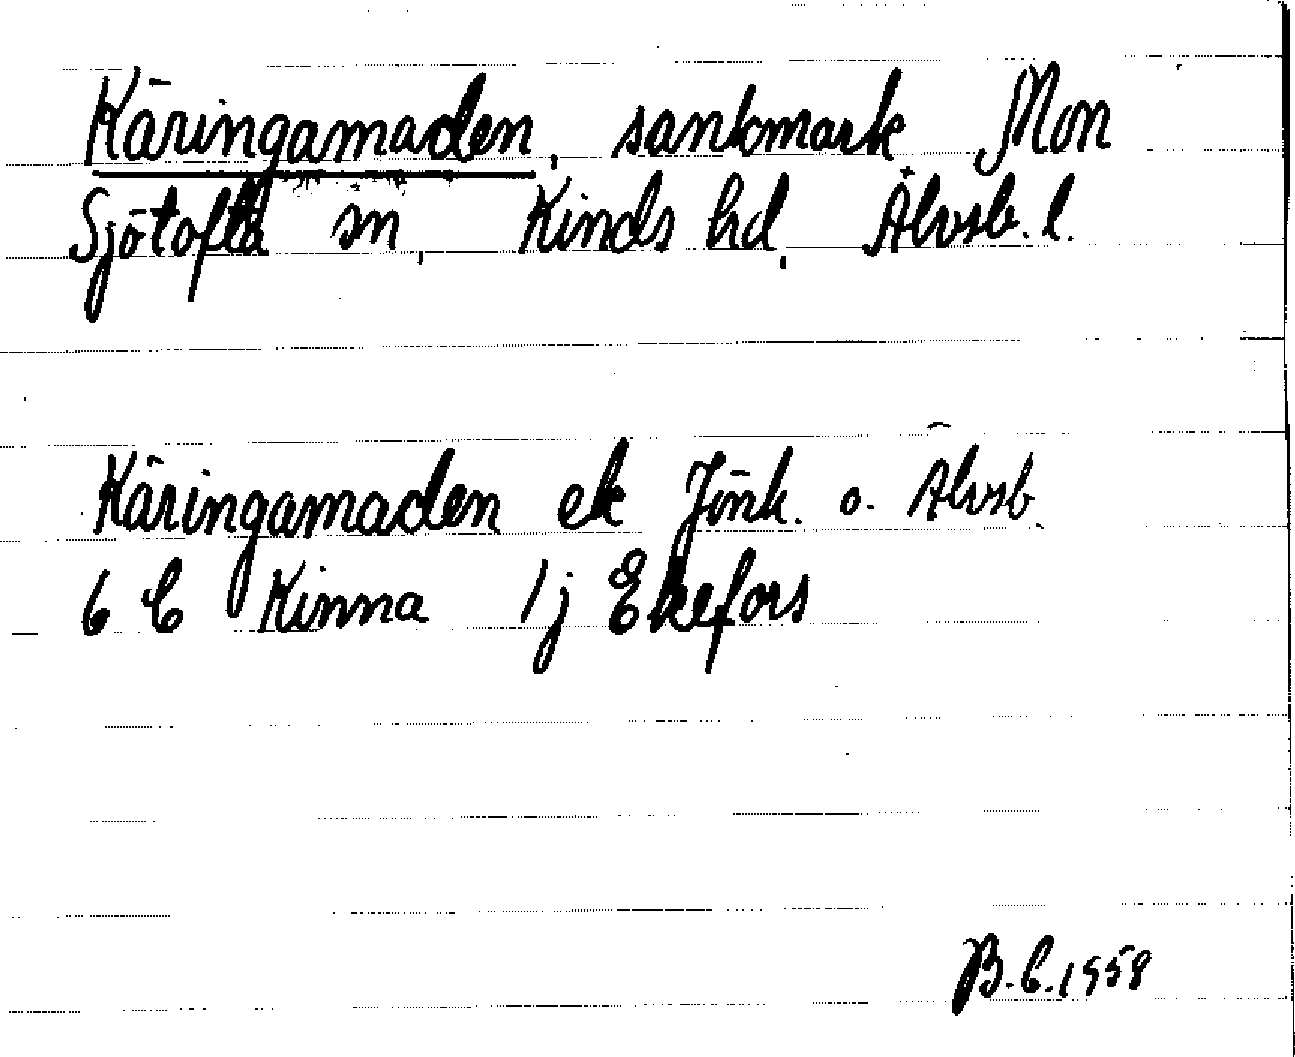 Käringamaden, sankmark Mon
Sjötofta sn, Kinds hd, Älvsb. l.
Käringamaden ek Jönk. o. Älvsb.
6 C Kinna 1j Ekefors
B.C.1958